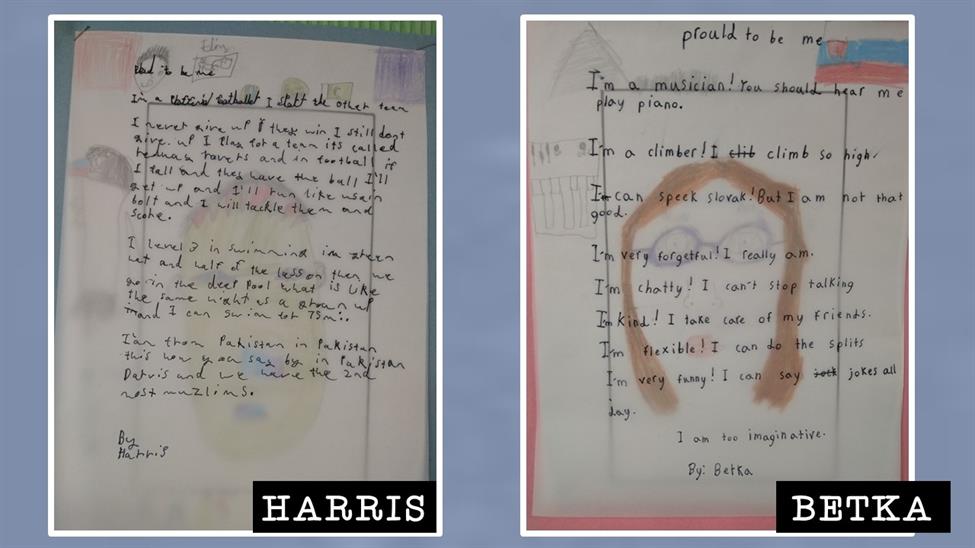 Proud to be me
I'm a
I start the other team
I never give up if they win I still dont
give. up I Play for a team its called
ravers and in football if
I fall and they have the ball I'll
get up and I'll run like usain
bolt and I will tackle them and
score.
I level 3 in swimming im
and half of the lesson then we
go in the deep pool what is like
the same hight as a grown up
and I can swim for 75m.
I'am from Pakistan in Pakistan
this how you say by in Pakistan
and we have the 2nd
most muzlims.
By
Harris
HARRIS
prould to be me
I'm a musician! You should hear me
play piano.
I'm a climber! I clib climb so high.
I'm can speek slovak! But I am not that
good.
I'm very forgetful! I really am.
I'm chatty! I can't stop talking
I'm kind! I take care of my friends.
I'm flexible! I can do the splits
I'm very funny! I can say jock jokes all
day.
I am too imaginative.
By: Betka
BETKA